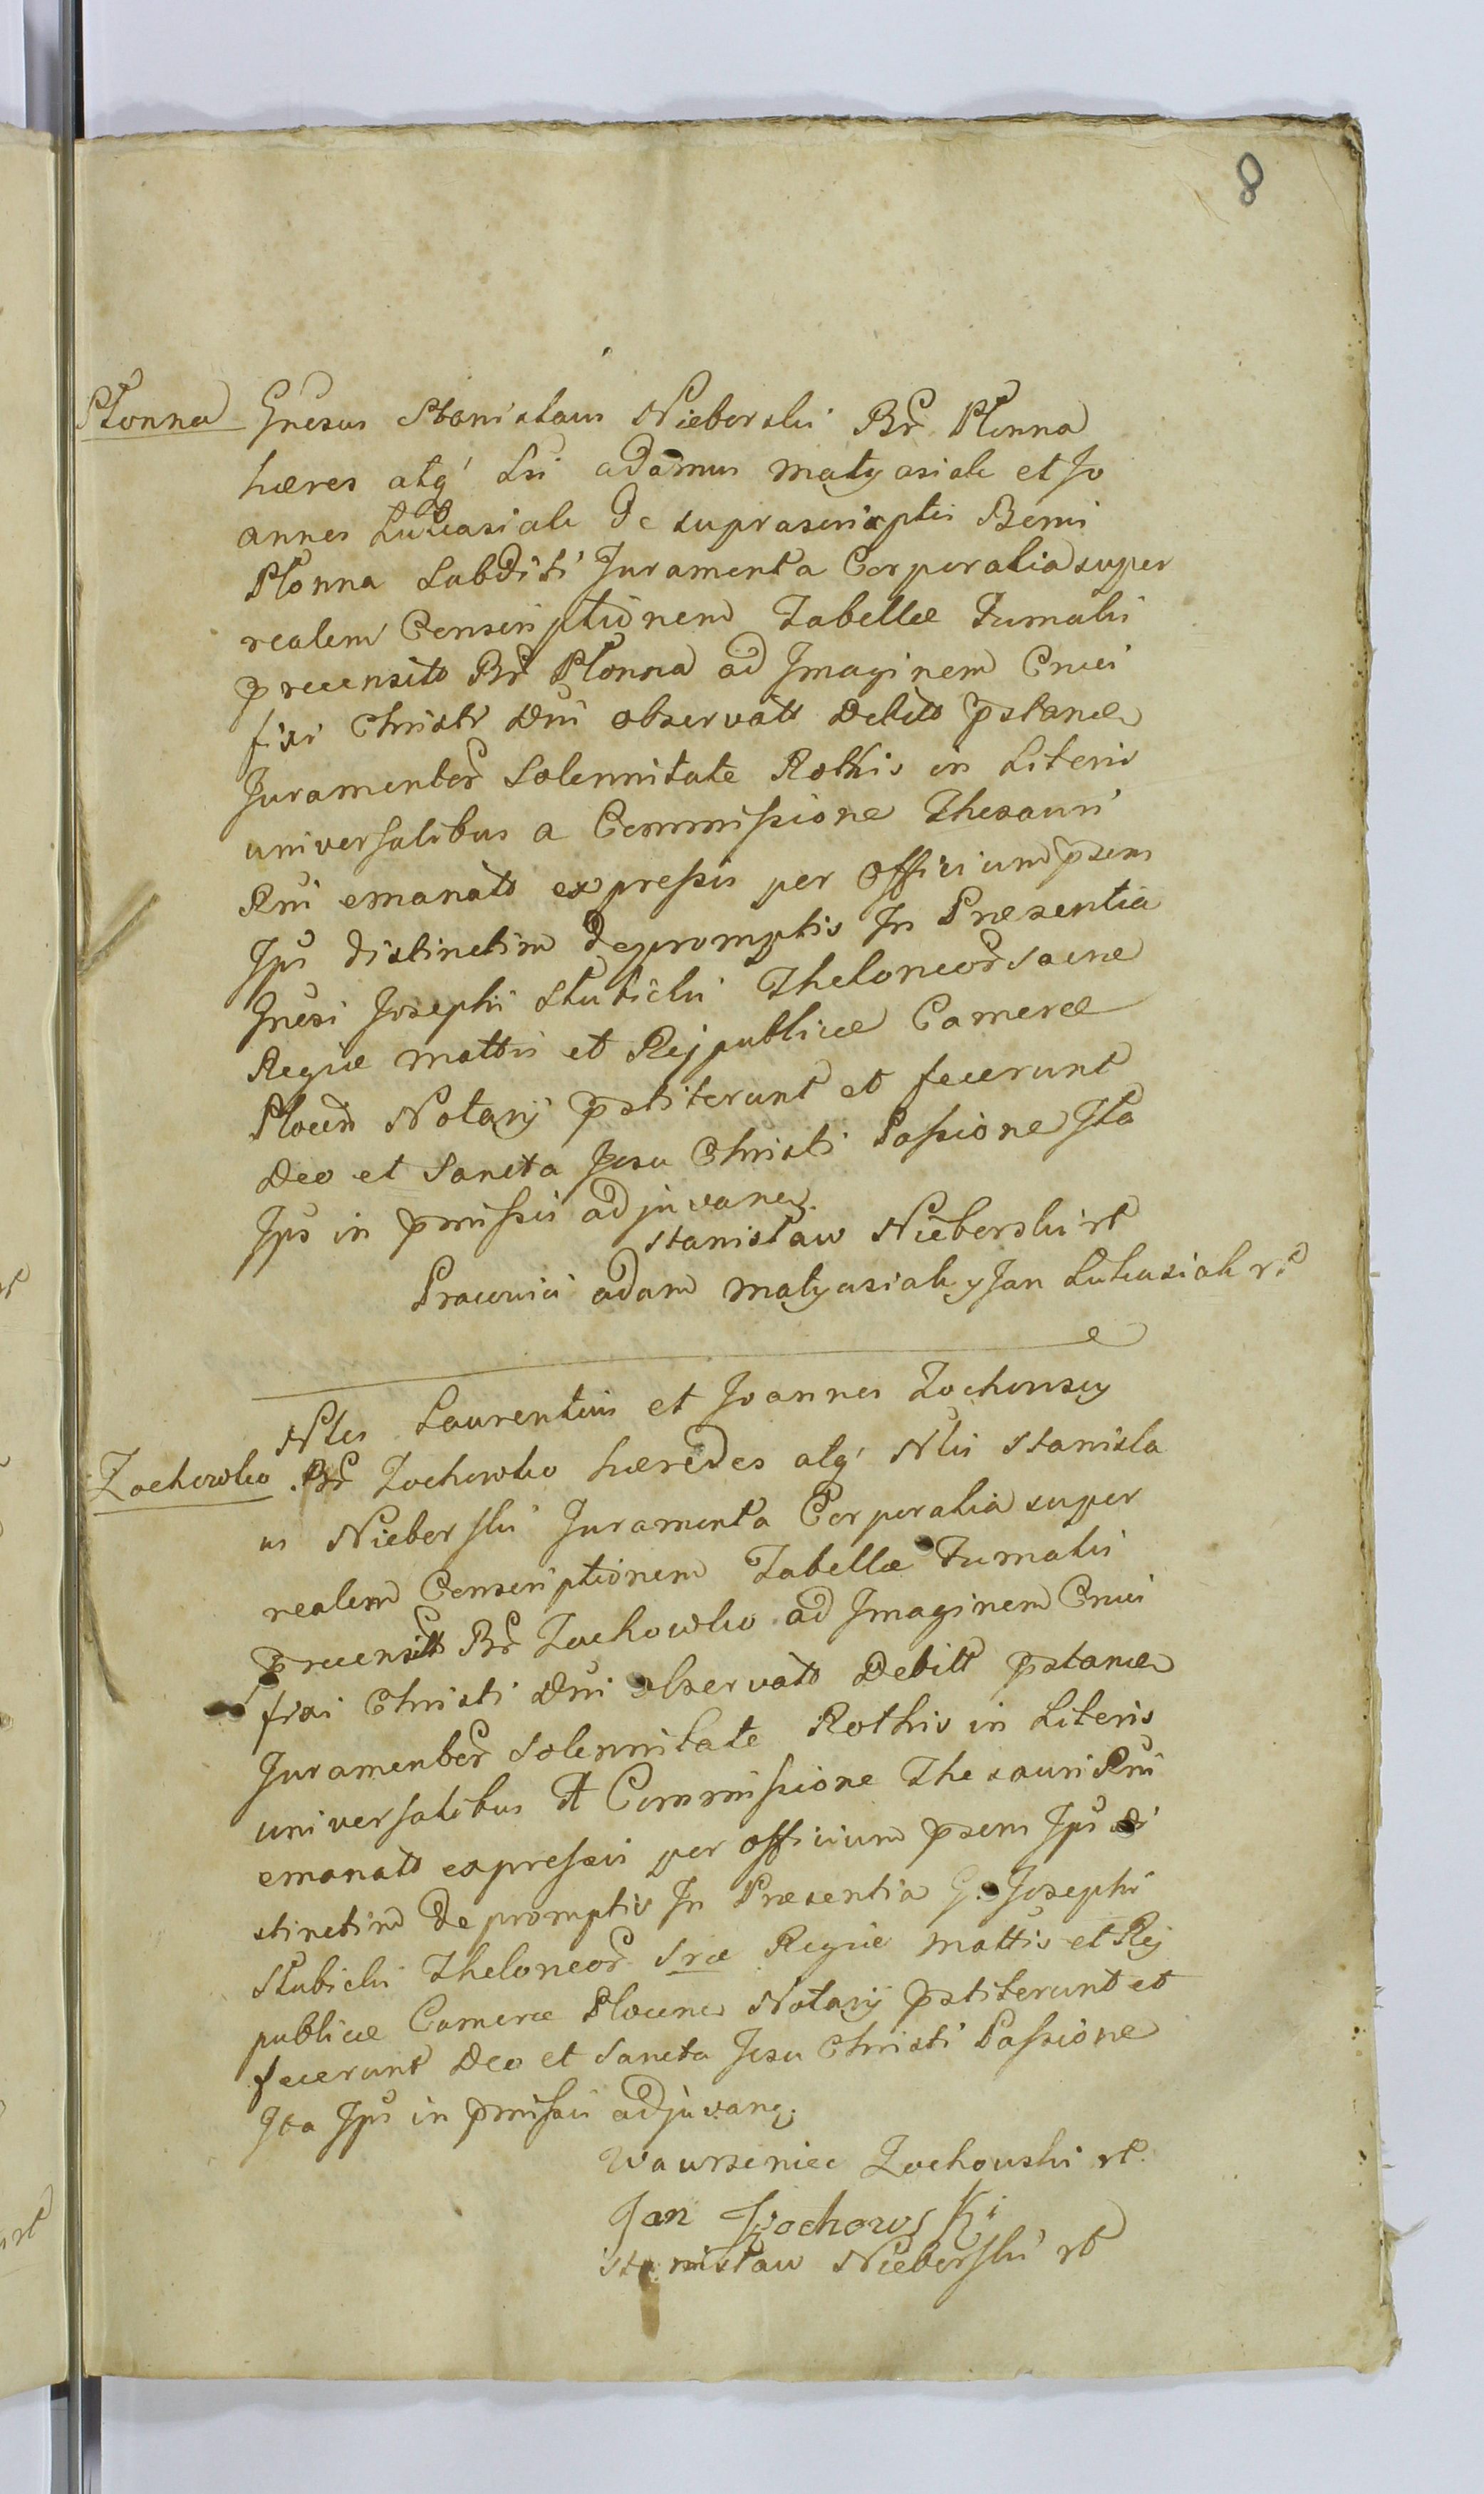 8
Płonna Gnesus Stanislaus Nieborski Br Płonna
hæres atq' Lri adamus matyasiak et Jo
annes Lukasiak de suprascriptis Bonis
Płonna Subditi Juramenta Corporalia super
realem Conscriptionem Tabellæ Fumalis
precensito Br Płonna ad Imaginem Cruci
fixi Christi Dni observatt Debitto pstance
Juramentor Solennitate Rothis in Literis
universalibus a Commissione Thesauri
Rni emanatt expressis per Officium psens
Ips distinctim depromptis In Præsentia
Gnesi Josephi Słubicki Theloneor Sacræ
Regiæ mattis et Reipublicæ Cameræ
Plocen Notarij pstiterunt et fecerunt
Deo et Sancta Jesu Christi Passione Ita
Ips in pmissis adjuvane.
Stanisław Nieborski rt
Pracowici adam matyasiak y Jan Lukasiak rt
Nles Laurentius et Joannes Zochowscy
Zochowko Br Zochowko hæredes atq' Nlis Stanisla
us Nieborski Juramenta Corporalia super
realem Conscriptionem Tabellæ Fumalis
precensitt Br Zochowko ad Imaginem Cruci
fixi Christi Dni observatt Debitt pstance
Juramentor Solennitate Rothis in Literis
universalibus A Commissione Thesauri Rni
emanatt expressis per officium psens Ips di
stinctim depromptis In Præsentia G. Josephi
Słubicki Theloneor Sræ Regiæ mattis et Rei
publicæ Cameræ Plocene Notarij pstiterunt et
fecerunt Deo et Sancta Jesu Christi Passione
Ita Ips in pmissis adjuvane.
Wawrzeniec Zochowski rt
Jan Zochowski
Stanisław Nieborski rt